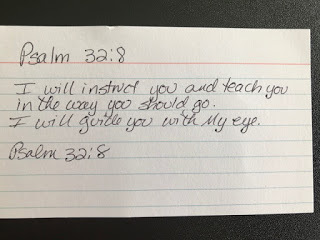 Psalm 32:8
I will instruct you and teach you
in the way you should go.
I will guide you with My eye.
Psalm 32:8